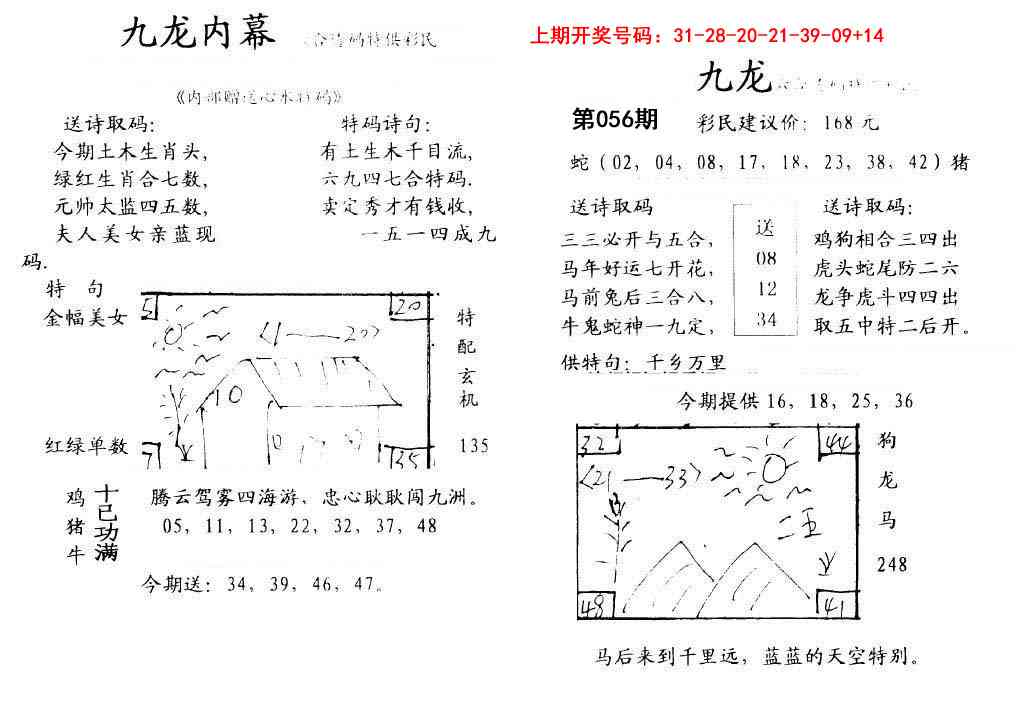 九龙内幕
《内部赠送心水特码》
送诗取码:
今期土木生肖头,
绿红生肖合七数,
元帅太监四五数,
夫人美女亲蓝现
码.
特码诗句:
有土生木千目流,
六九四七合特码.
卖定秀才有钱收,
一五一四成九
特 句
金幅美女
红绿单数
5
20
<1——20>
10
0
7
35
特
配
玄
机
135
鸡
猪
牛
十已功满
腾云驾雾四海游、忠心耿耿闯九洲。
05, 11, 13, 22, 32, 37, 48
今期送: 34, 39, 46, 47。
上期开奖号码: 31-28-20-21-39-09+14
九龙
第056期
彩民建议价: 168元
蛇 (02, 04, 08, 17, 18, 23, 38, 42) 猪
送诗取码
三三必开与五合,
马年好运七开花,
马前兔后三合八,
牛鬼蛇神一九定,
送
08
12
34
送诗取码:
鸡狗相合三四出
虎头蛇尾防二六
龙争虎斗四四出
取五中特二后开。
供特句: 千乡万里
今期提供 16, 18, 25, 36
32
44
<21——33>
二五
48
41
狗
龙
马
248
马后来到千里远, 蓝蓝的天空特别。